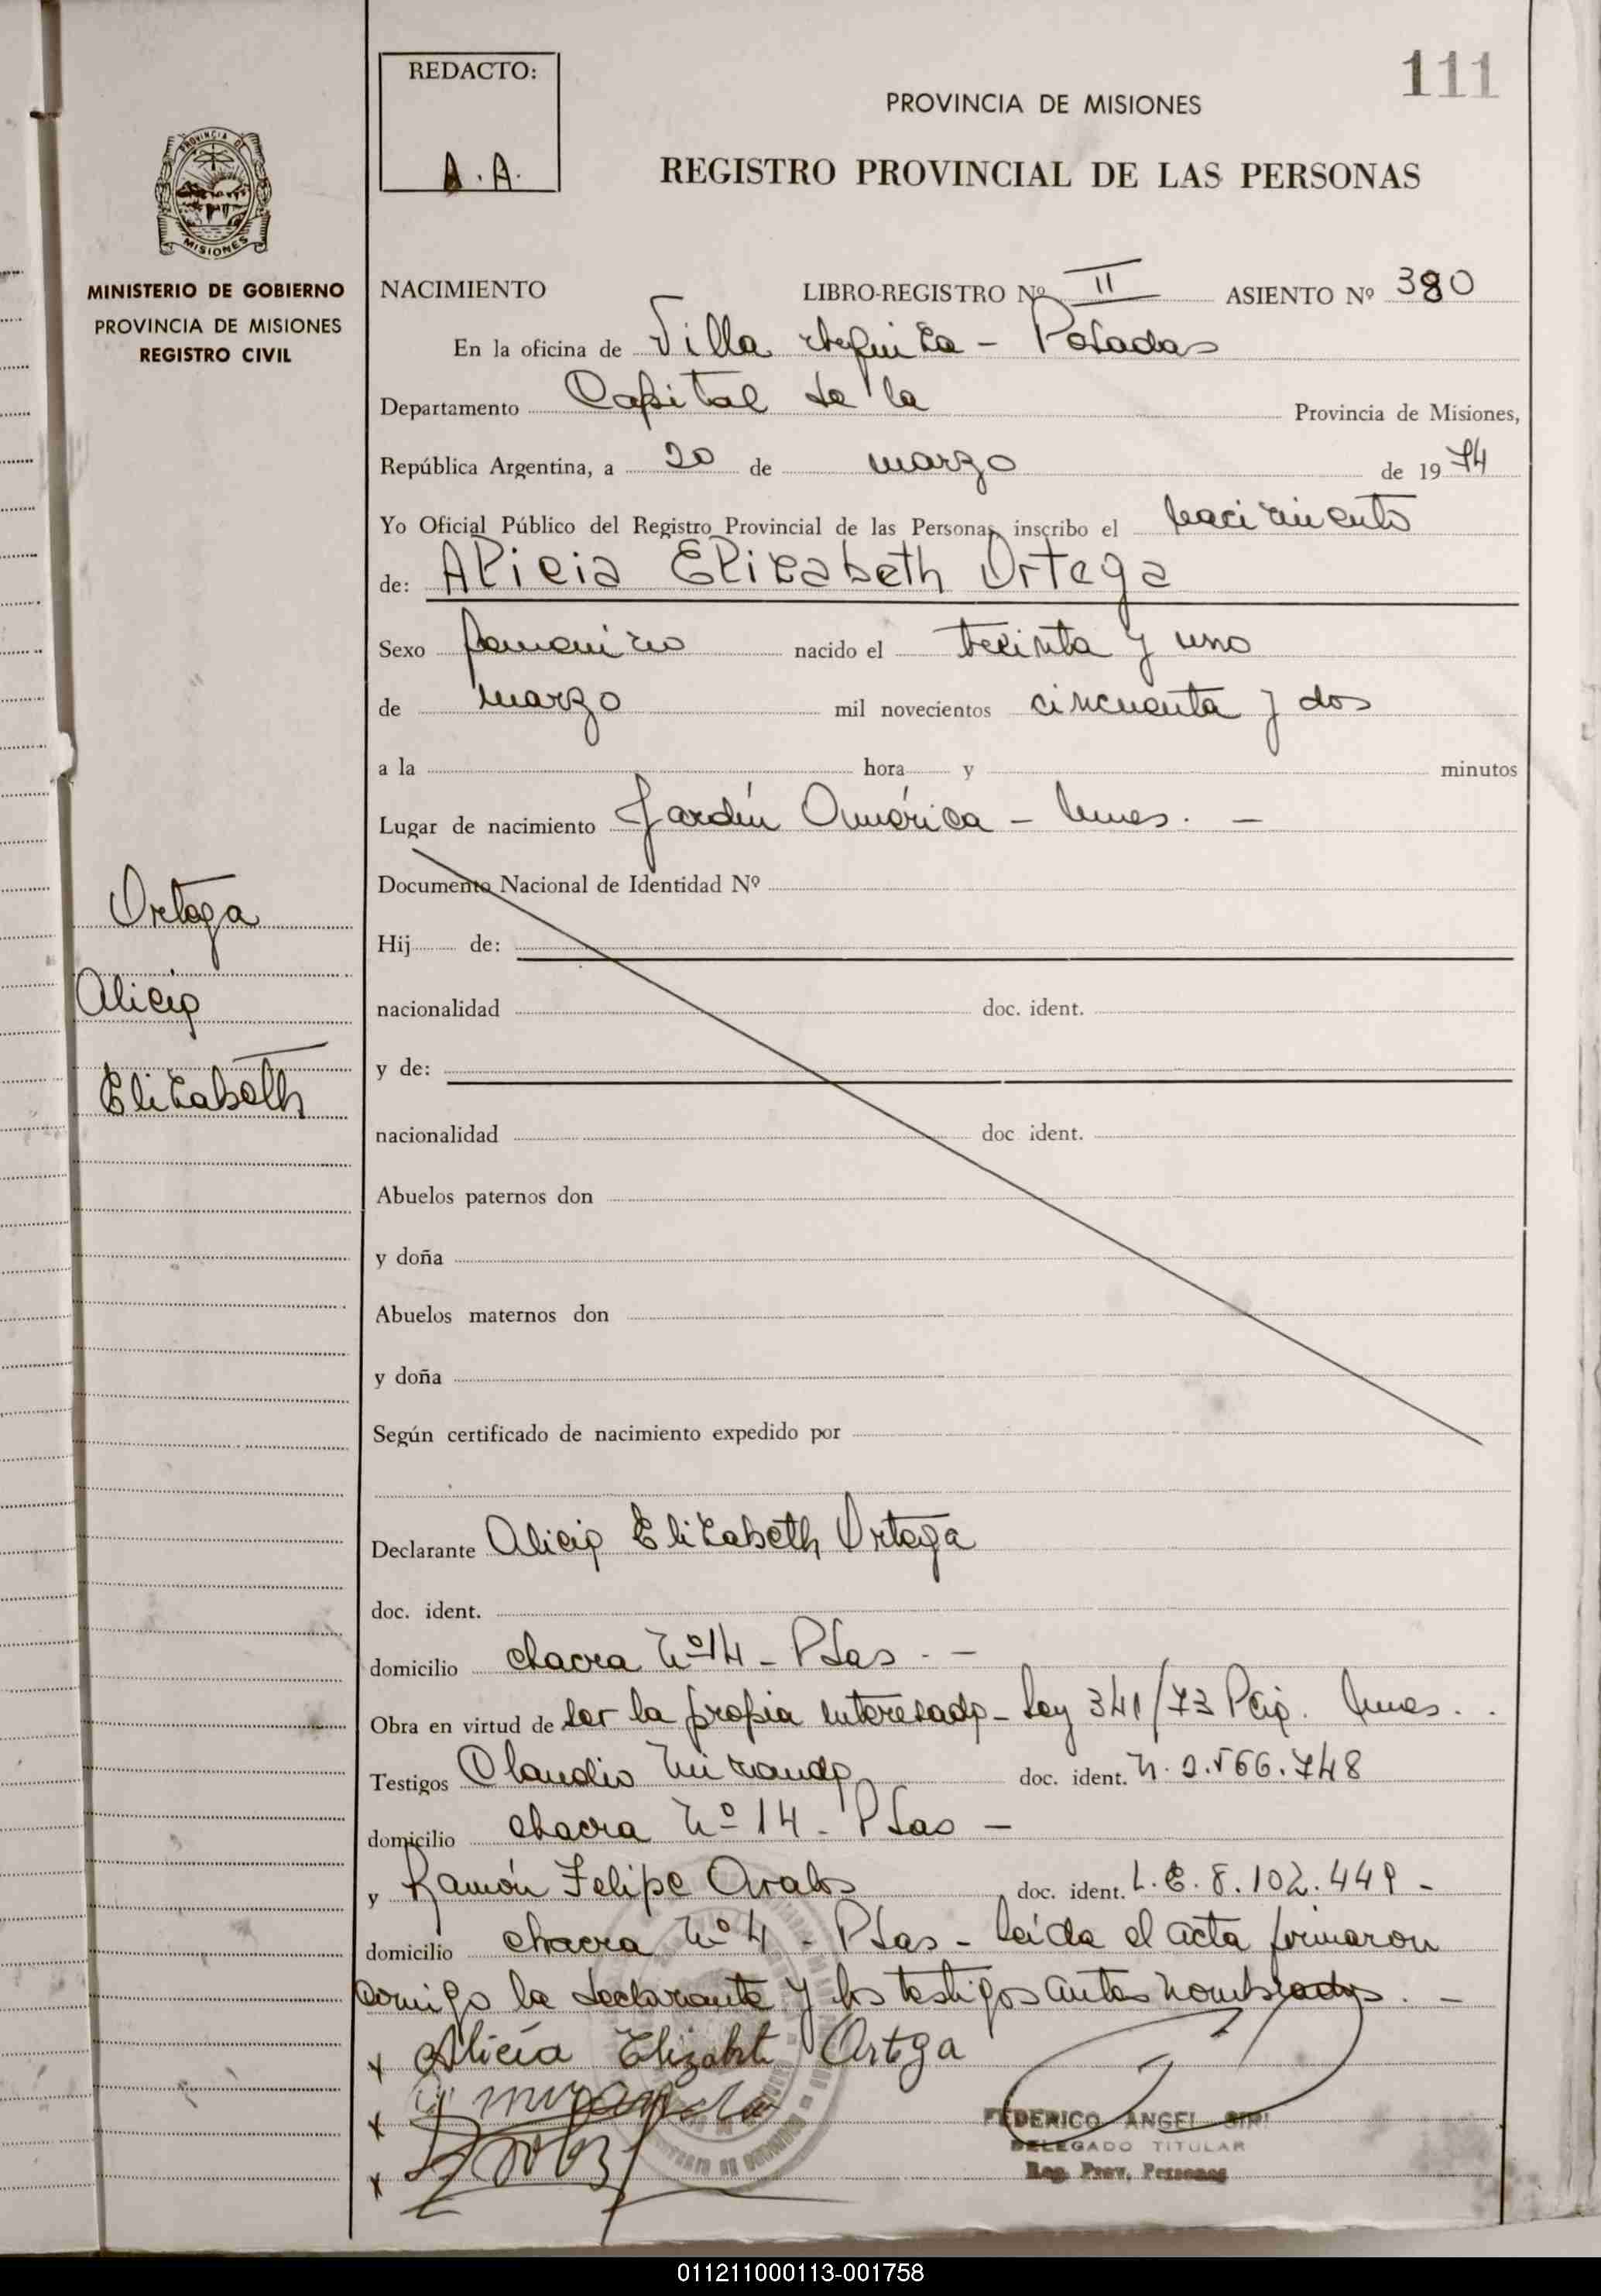 111
REDACTO:
A.A.
PROVINCIA DE MISIONES
REGISTRO PROVINCIAL DE LAS PERSONAS
PROVINCIA DE
MISIONES
MINISTERIO DE GOBIERNO
PROVINCIA DE MISIONES
REGISTRO CIVIL
NACIMIENTO LIBRO-REGISTRO Nº II ASIENTO Nº 380
En la oficina de Villa Urquiza - Posadas
Departamento Capital de la Provincia de Misiones,
República Argentina, a 20 de marzo de 1974
Yo Oficial Público del Registro Provincial de las Personas, inscribo el nacimiento
de: Alicia Elizabeth Ortega
Sexo femenino nacido el treinta y uno
de marzo mil novecientos cincuenta y dos
a la hora y minutos
Lugar de nacimiento Jardín América - Mnes. -
Documento Nacional de Identidad Nº
Hij de:
nacionalidad doc. ident.
y de:
nacionalidad doc. ident.
Abuelos paternos don
y doña
Abuelos maternos don
y doña
Según certificado de nacimiento expedido por
Ortega
Alicia
Elizabeth
Declarante Alicia Elizabeth Ortega
doc. ident.
domicilio chacra Nº 14 - Pdas. -
Obra en virtud de ser la propia interesada - Ley 341/73 Pcia. Mnes. .
Testigos Claudio Miranda doc. ident. 748
domicilio chacra Nº 14 - Pdas -
y Ramón Felipe Avalos doc. ident. L.E. 8.102.449 -
domicilio chacra Nº 4 - Pdas - leída el acta firmaron
comigo la declarante y los testigos antes nombrados. -
x Alicia Elizabt Ortga
x Miranda
x
FEDERICO ANGEL
DELEGADO TITULAR
Reg. Prov. Personas
011211000113-001758